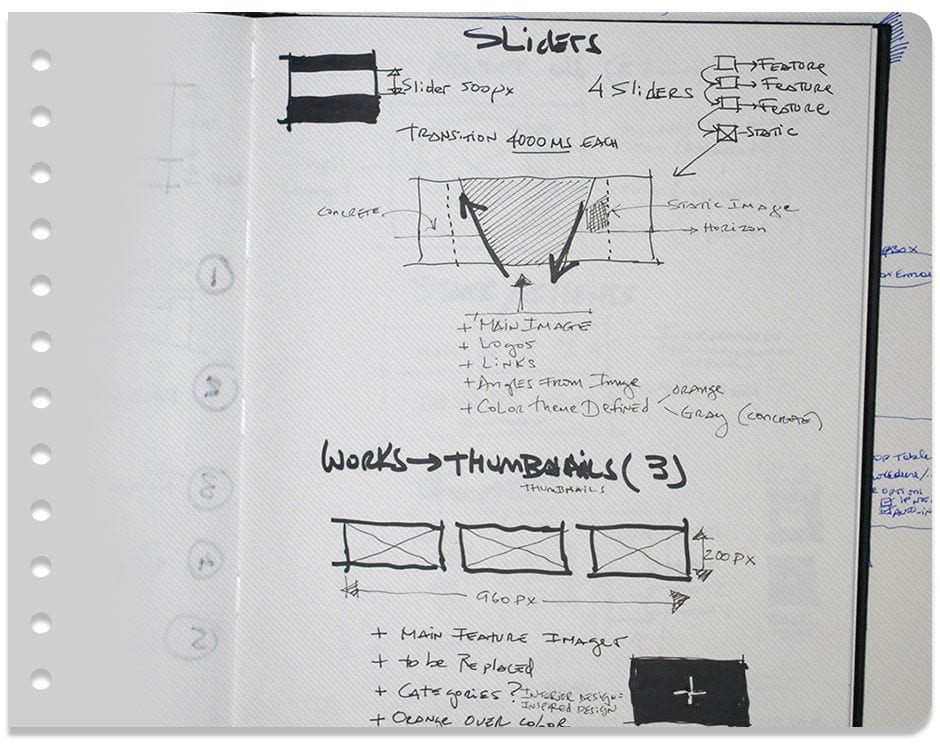 SLIDERS
Slider 500px
4 SLIDERS
FEATURE
FEATURE
FEATURE
STATIC
TRANSITION 4000 MS EACH
CONCRETE
STATIC IMAGE
HORIZON
+ MAIN IMAGE
+ Logos
+ LINKS
+ Angles From Image
+ Color theme Defined
ORANGE
GRAY (CONCRETE)
WORKS → THUMBNAILS (3)
THUMBNAILS
200 PX
960 PX
+ MAIN FEATURE IMAGES
+ to be Replaced
+ CATEGORIES? INTERIOR DESIGN =
INSPIRED DESIGN
+ ORANGE OVER COLOR
+
1
2
3
4
5